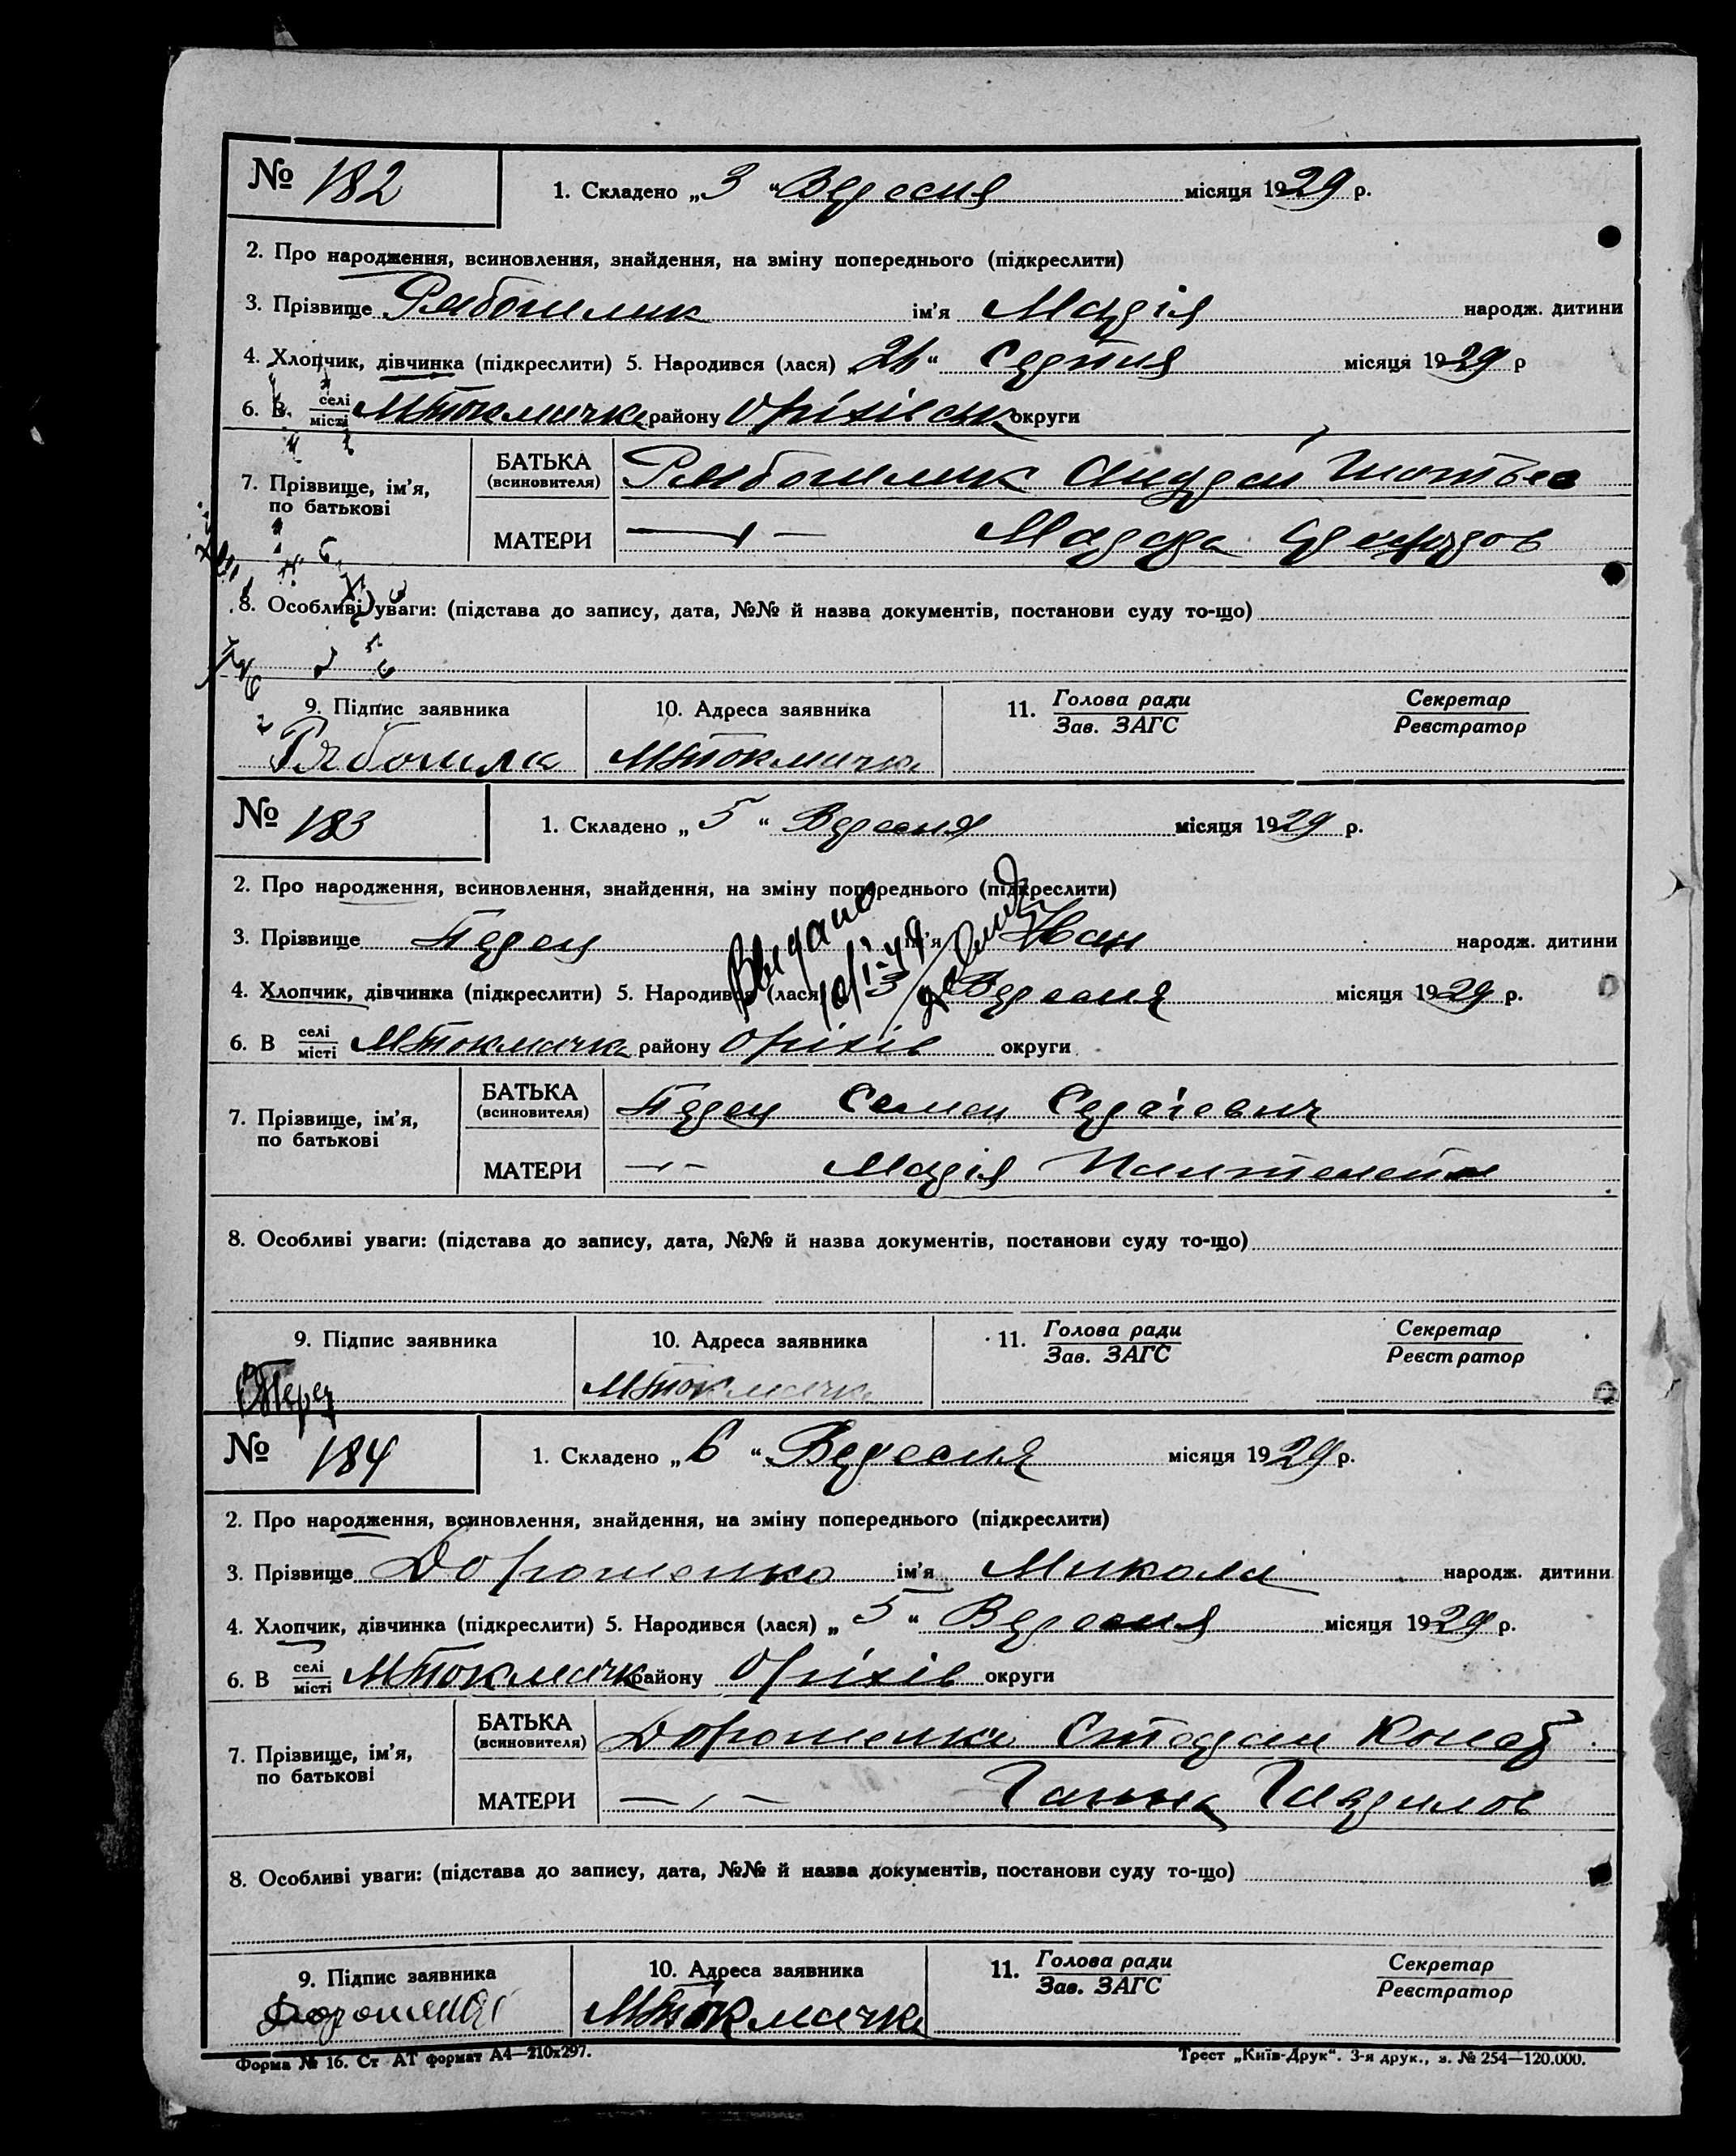 № 182
1. Складено „3“ Вересня місяця 1929 р.
2. Про народження, всиновлення, знайдення, на зміну попереднього (підкреслити)
3. Прізвище Рябошапк ім'я Марія народж. дитини
4. Хлопчик, дівчинка (підкреслити) 5. Народився (лася) Серпня місяця 1929 р
6. В селі/місті МТокмачка району Оріхівськ округи
7. Прізвище, ім'я, по батькові
БАТЬКА (всиновителя) Андрій
МАТЕРИ —„—
8. Особливі уваги: (підстава до запису, дата, №№ й назва документів, постанови суду то-що)
9. Підпис заявника
10. Адреса заявника МТокмачка
11. Голова ради/Зав. ЗАГС
Секретар/Реєстратор
№ 183
1. Складено „5“ Вересня місяця 1929 р.
2. Про народження, всиновлення, знайдення, на зміну попереднього (підкреслити)
3. Прізвище Перец ім'я Иван народж. дитини
Выдано
10/I-49
4. Хлопчик, дівчинка (підкреслити) 5. Народився (лася) 3 Вересня місяця 1929 р.
6. В селі/місті МТокмачка району Оріхів округи
7. Прізвище, ім'я, по батькові
БАТЬКА (всиновителя) Перец Семен Сергіевич
МАТЕРИ —„— Марія
8. Особливі уваги: (підстава до запису, дата, №№ й назва документів, постанови суду то-що)
9. Підпис заявника
СПерец
10. Адреса заявника МТокмачка
11. Голова ради/Зав. ЗАГС
Секретар/Реєстратор
№ 184
1. Складено „6“ Вересня місяця 1929 р.
2. Про народження, всиновлення, знайдення, на зміну попереднього (підкреслити)
3. Прізвище Дорошенко ім'я Микола народж. дитини
4. Хлопчик, дівчинка (підкреслити) 5. Народився (лася) „5“ Вересня місяця 1929 р.
6. В селі/місті МТокмачк району Оріхів округи
7. Прізвище, ім'я, по батькові
БАТЬКА (всиновителя) Дорошенко
МАТЕРИ —„— Ганна Гаврилов
8. Особливі уваги: (підстава до запису, дата, №№ й назва документів, постанови суду то-що)
9. Підпис заявника
10. Адреса заявника МТокмачка
11. Голова ради/Зав. ЗАГС
Секретар/Реєстратор
Форма № 16. Ст АТ формат А4—210х297.
Трест „Київ-Друк“. 3-я друк., з. № 254—120.000.